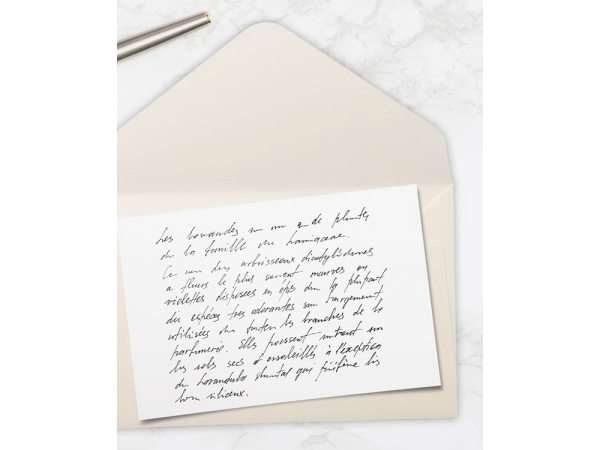 Les lavandes
de la famille du Lamiaceae.
arbrisseaux dicotylédones
a fleurs le plus souvent mauves ou
violettes disposées en épis la plupart
des espèces très odorantes son largement
utilisées toutes les branches de la
parfumerie. Elles poussent surtout
les sols secs et ensoleillés à l'exception
de Lavandula qui préfère les
siliceux.